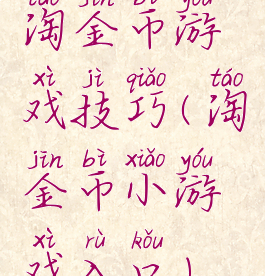 táo jīn bì yóu
淘金币游
xì jì qiǎo táo
戏技巧(淘
jīn bì xiǎo yóu
金币小游
xì rù kǒu
戏入口)